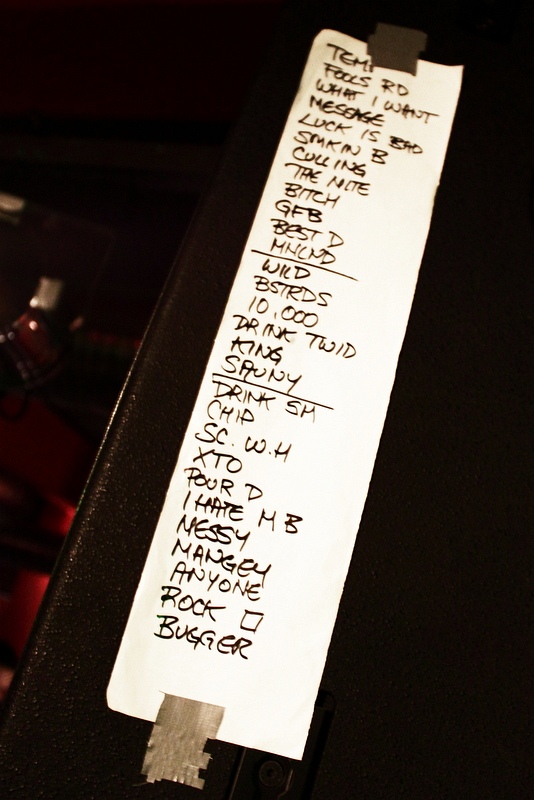 TEM
FOOLS RD
WHAT I WANT
MESSAGE
LUCK IS BAD
SMKIN B
CULLING
THE NITE
BITCH
GFB
BEST D
MNLND
WILD
BSTRDS
10,000
DRINK TWID
KING
SAUNY
DRINK SM
CHIP
SC. W.H
XTO
POUR D
I HATE M B
MESSY
MANGEY
ANYONE
ROCK □
BUGGER